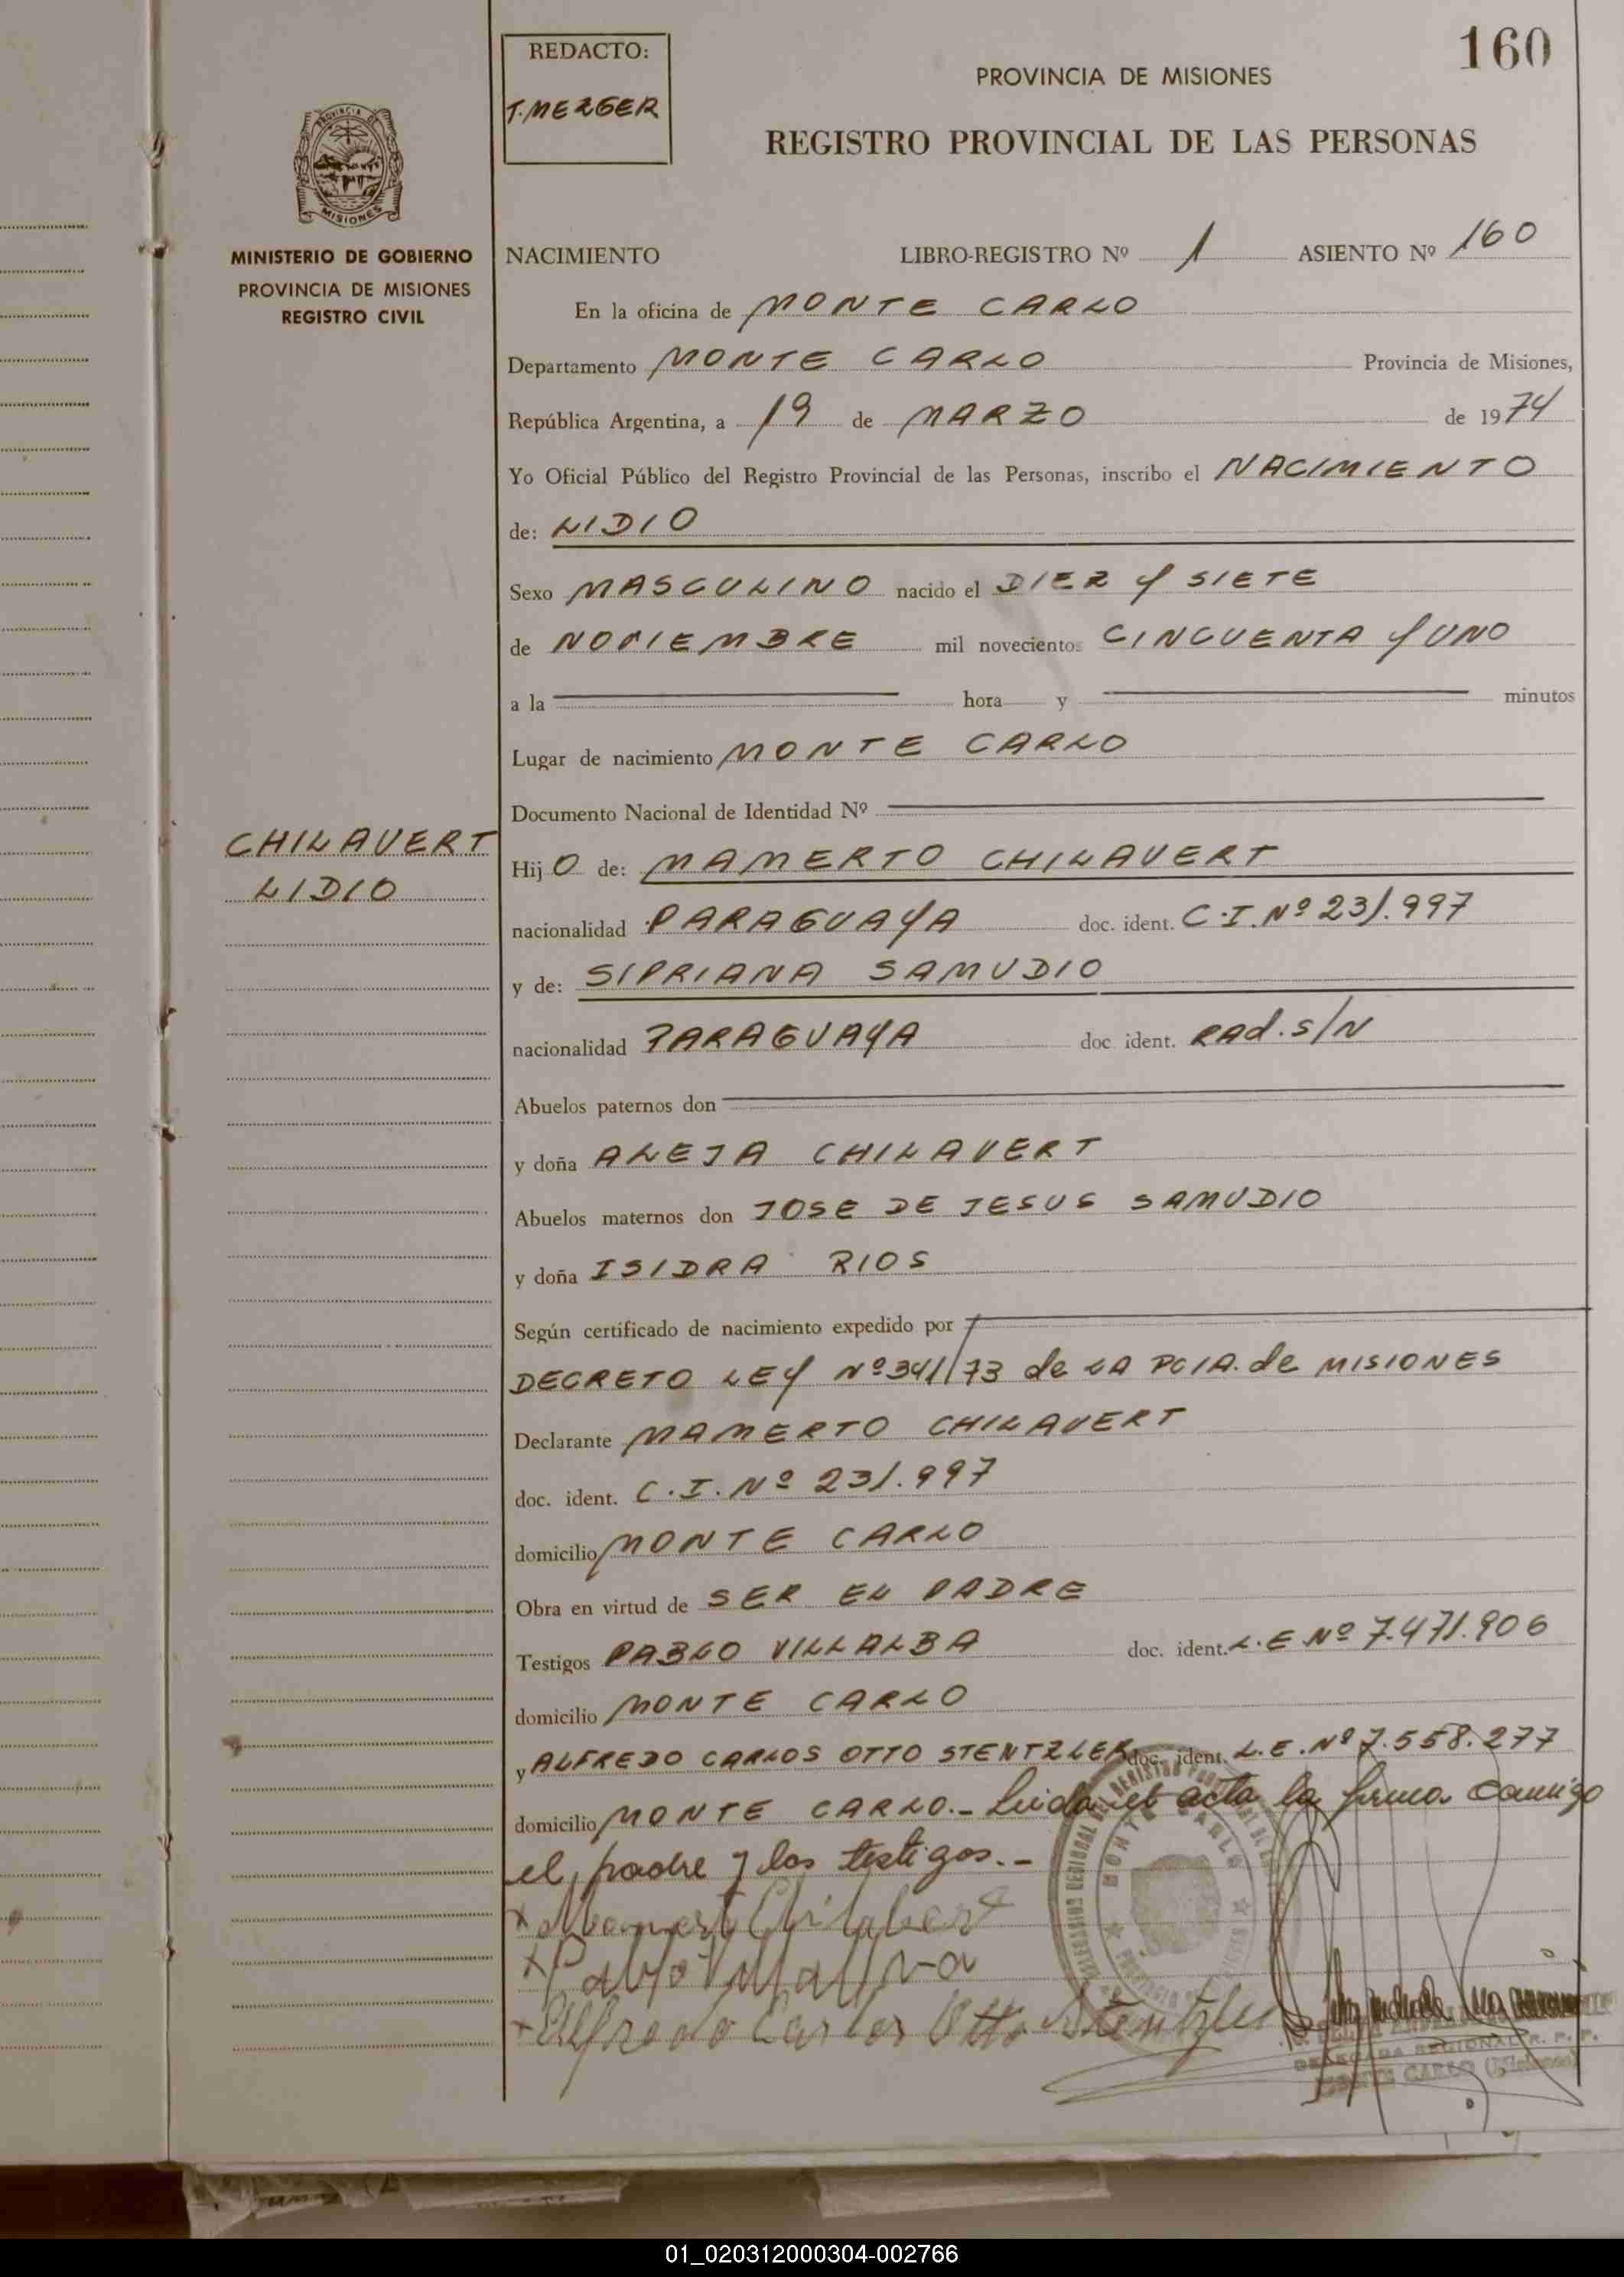 160
REDACTO:
T. MEZGER
PROVINCIA DE MISIONES
REGISTRO PROVINCIAL DE LAS PERSONAS
PROVINCIA DE
MISIONES
MINISTERIO DE GOBIERNO
PROVINCIA DE MISIONES
REGISTRO CIVIL
NACIMIENTO LIBRO-REGISTRO Nº 1 ASIENTO Nº 160
En la oficina de MONTE CARLO
Departamento MONTE CARLO Provincia de Misiones,
República Argentina, a 19 de MARZO de 1974
Yo Oficial Público del Registro Provincial de las Personas, inscribo el NACIMIENTO
de: LIDIO
Sexo MASCULINO nacido el DIEZ y SIETE
de NOVIEMBRE mil novecientos CINCUENTA y UNO
a la hora y minutos
Lugar de nacimiento MONTE CARLO
Documento Nacional de Identidad Nº
CHILAVERT
LIDIO
Hij O de: MAMERTO CHILAVERT
nacionalidad PARAGUAYA doc. ident. C.I. Nº 231.997
y de: SIPRIANA SAMUDIO
nacionalidad PARAGUAYA doc ident. RAd. S/N
Abuelos paternos don
y doña ALEJA CHILAVERT
Abuelos maternos don JOSE DE JESUS SAMUDIO
y doña ISIDRA RIOS
Según certificado de nacimiento expedido por
DECRETO LEY Nº 341/73 de LA PCIA. de MISIONES
Declarante MAMERTO CHILAVERT
doc. ident. C.I. Nº 231.997
domicilio MONTE CARLO
Obra en virtud de SER EL PADRE
Testigos PABLO VILLALBA doc. ident. L.E Nº 7.471.906
domicilio MONTE CARLO
y ALFREDO CARLOS OTTO STENTZLER doc. ident. L.E. Nº 7.558.277
domicilio MONTE CARLO.- Leida el acta la firma conmigo
el padre y los testigos.-
x Mamerto Chilabert
x Pablo Villalva
x Alfredo Carlos Otto Stentzler
MONTE CARLO
DELEGADA REGIONAL R. P. P.
MONTE CARLO (Misiones)
01_020312000304-002766